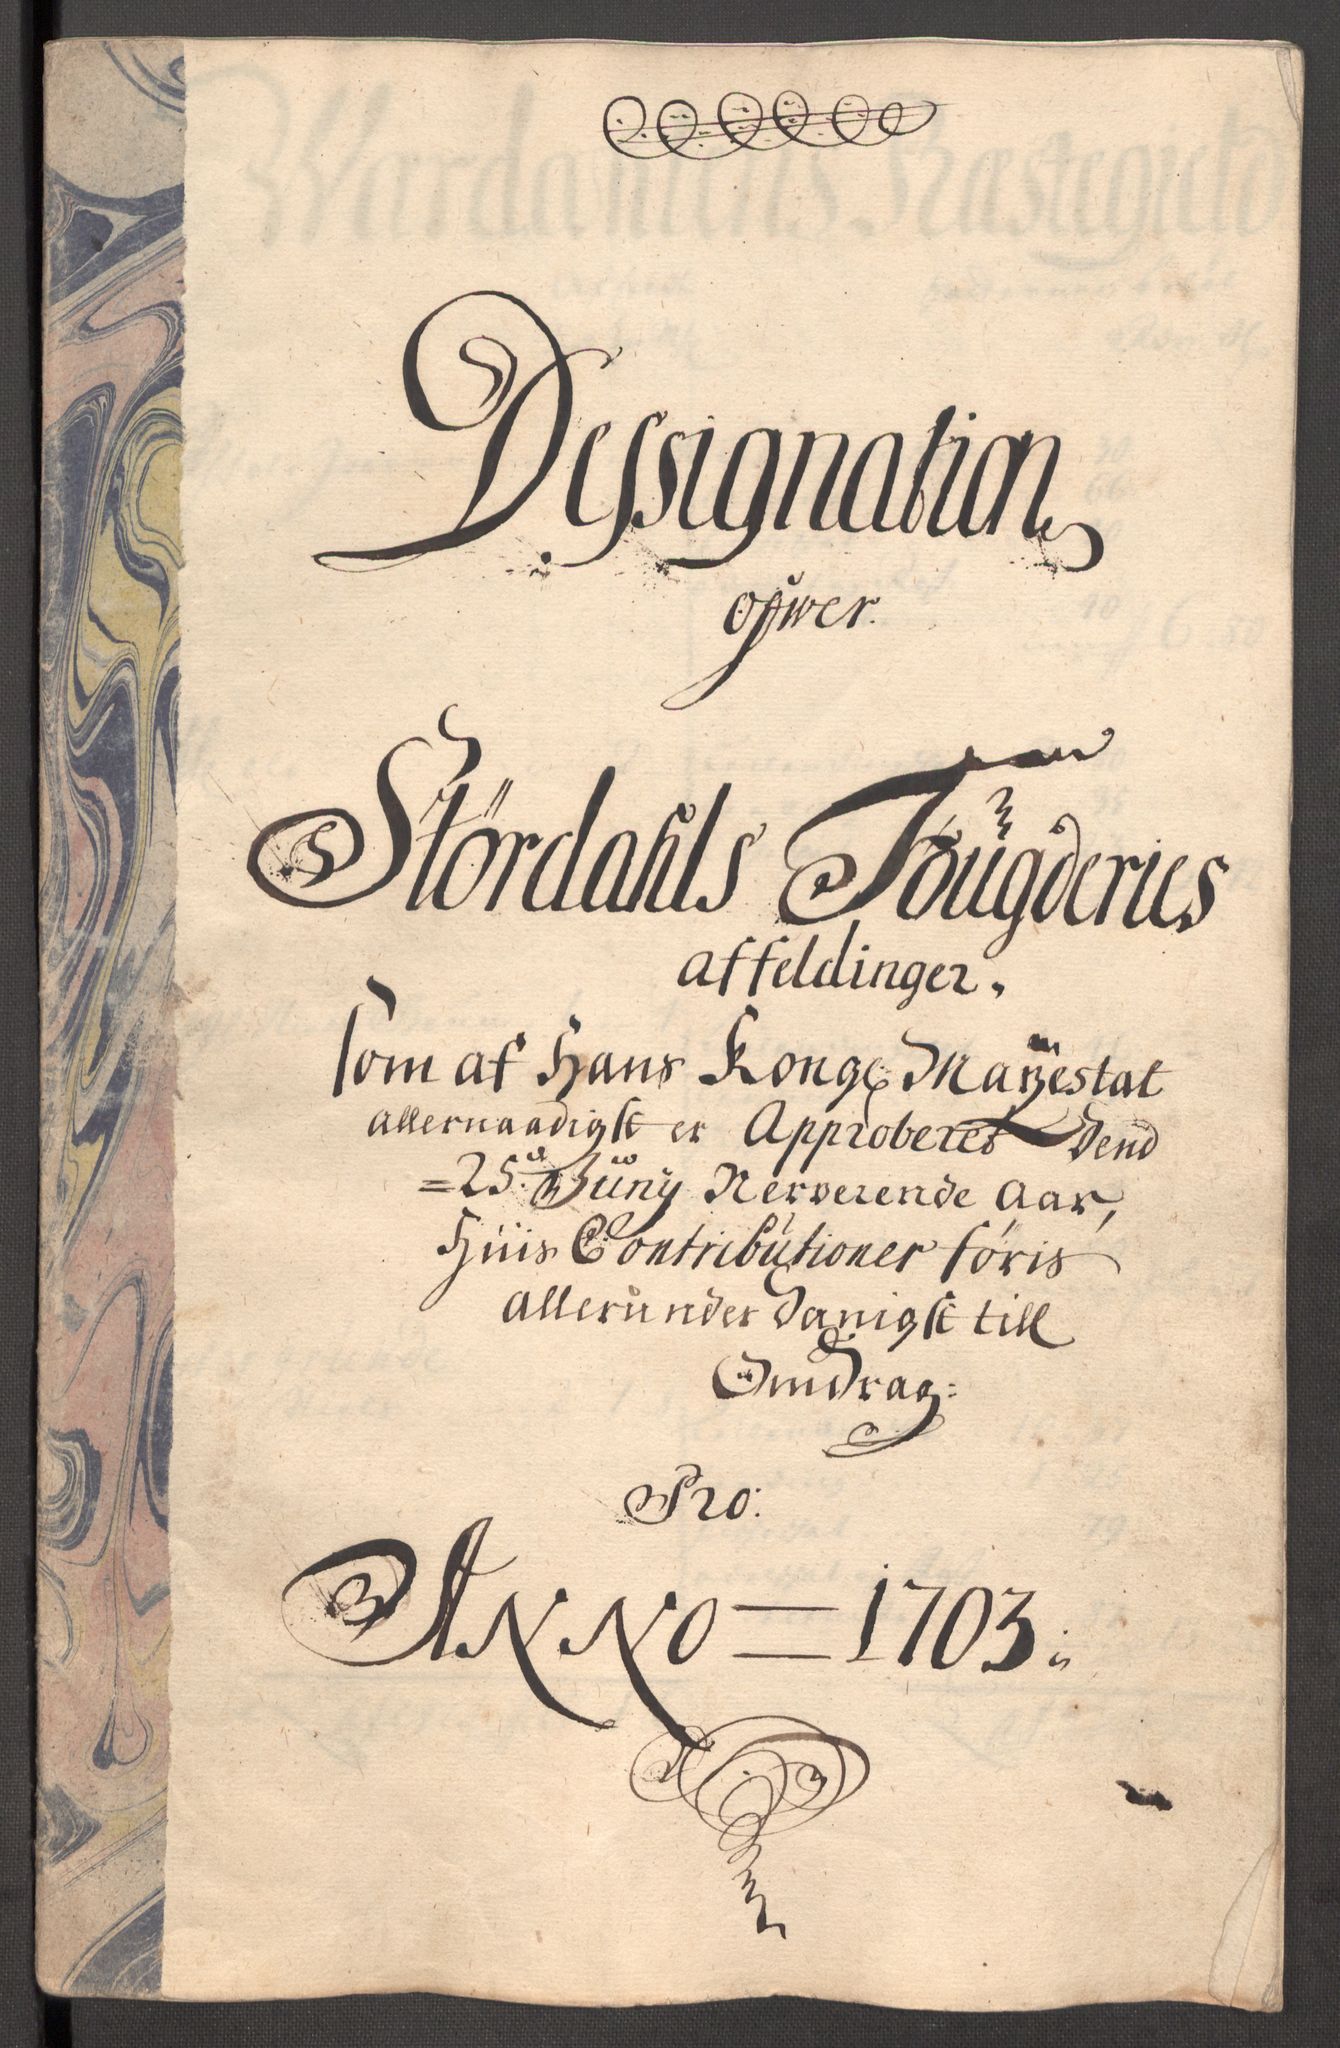 Dessignation
ofwer.
Stördahls Fougderies
affeldinger.
som af Hans Kongl Mayestat
allernaadigst er Approberet Dend
=25. Juny Nerverende Aar,
Huis Contributioner föris
allerunderdanigst till
Omdrag:
Pro:
ANNO = 1703: